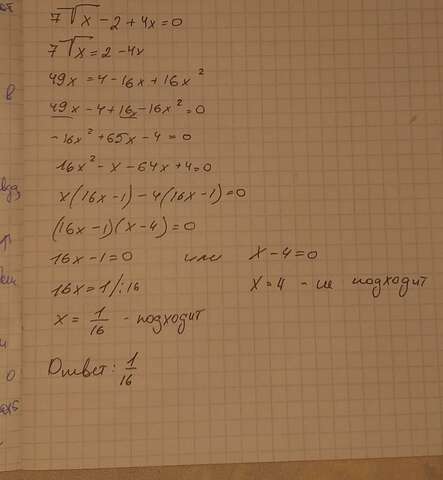 7√x - 2 + 4x = 0
7√x = 2 - 4x
49x = 4 - 16x + 16x²
49x - 4 + 16x - 16x² = 0
-16x² + 65x - 4 = 0
16x² - x - 64x + 4 = 0
x(16x - 1) - 4(16x - 1) = 0
(16x - 1)(x - 4) = 0
16x - 1 = 0 или x - 4 = 0
16x = 1 /:16 x = 4 - не подходит
x = 1/16 - подходит
Ответ: 1/16